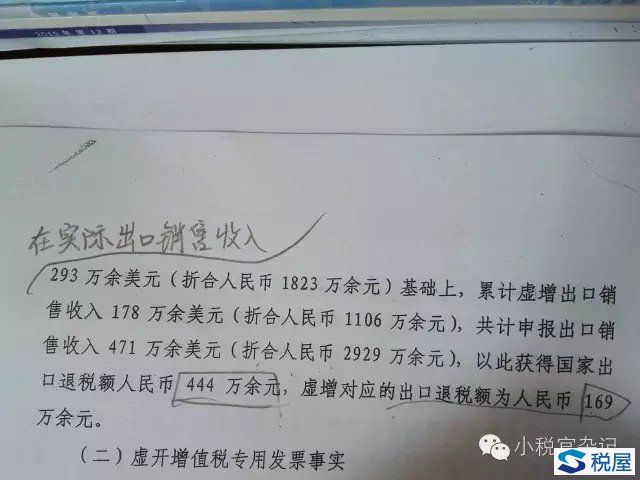 2015 年 第 12 期
在实际出口销售收入
293 万余美元（折合人民币 1823 万余元）基础上，累计虚增出口销
售收入 178 万余美元（折合人民币 1106 万余元），共计申报出口销
售收入 471 万余美元（折合人民币 2929 万余元），以此获得国家出
口退税额人民币 444 万余元，虚增对应的出口退税额为人民币 169
万余元。
（二）虚开增值税专用发票事实
小税官杂记
税屋